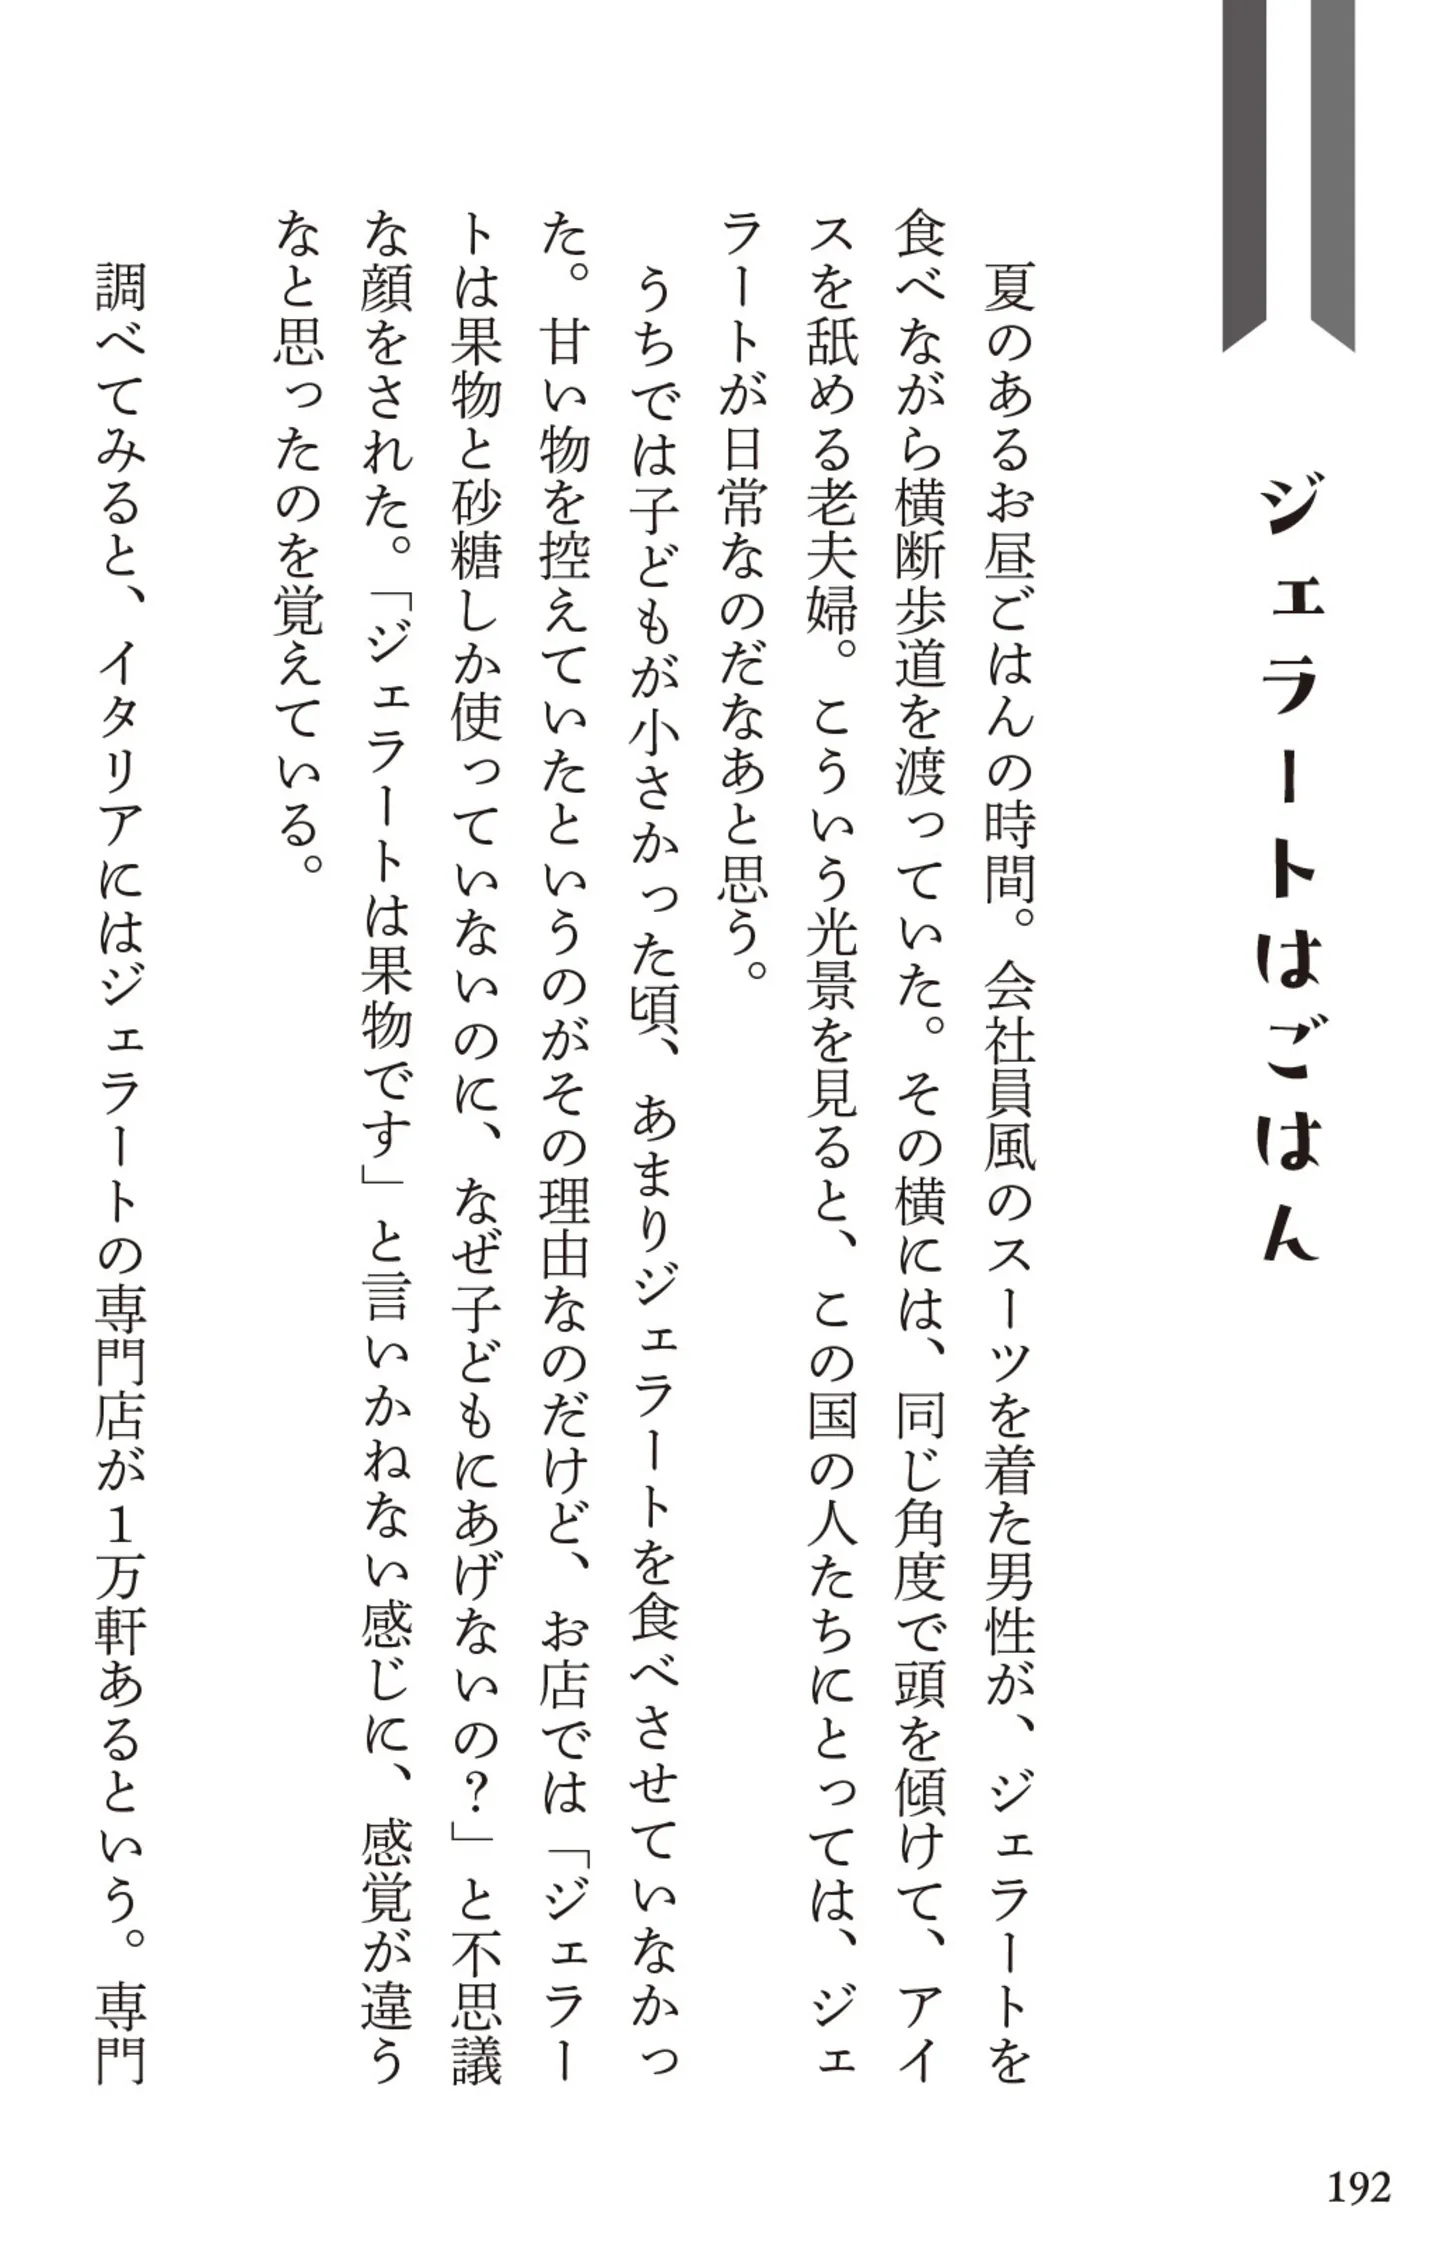 ジェラートはごはん
夏のあるお昼ごはんの時間。会社員風のスーツを着た男性が、ジェラートを
食べながら横断歩道を渡っていた。その横には、同じ角度で頭を傾けて、アイ
スを舐める老夫婦。こういう光景を見ると、この国の人たちにとっては、ジェ
ラートが日常なのだなあと思う。
うちでは子どもが小さかった頃、あまりジェラートを食べさせていなかっ
た。甘い物を控えていたというのがその理由なのだけど、お店では「ジェラー
トは果物と砂糖しか使っていないのに、なぜ子どもにあげないの？」と不思議
な顔をされた。「ジェラートは果物です」と言いかねない感じに、感覚が違う
なと思ったのを覚えている。
調べてみると、イタリアにはジェラートの専門店が1万軒あるという。専門
192